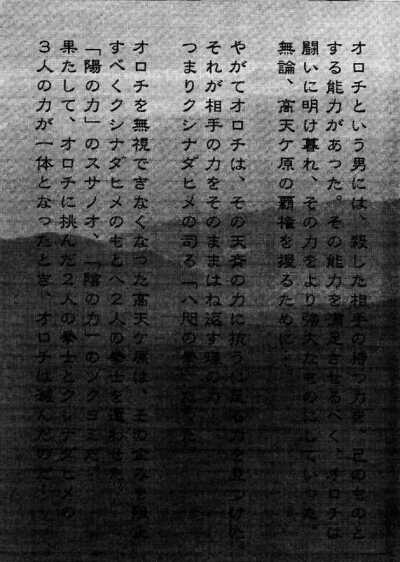 オロチという男には、殺した相手の持つ力を、己のものと
する能力があった。その能力を満足させるべく、オロチは
闘いに明け暮れ、その力をより強大なものにしていった。
無論、高天ケ原の覇権を握るために…
やがてオロチは、その天賦の力に抗うに足る力を見つけた。
それが相手の力をそのままはね返す鏡の力…
つまりクシナダヒメの司る「八咫の拳」だった
オロチを無視できなくなった高天ケ原は、その
すべくクシナダヒメのもとへ2人の拳士を遣わせた。
「陽の力」のスサノオ、「陰の力」のツクヨミだ。
果たして、オロチに挑んだ2人の拳士とクシナダヒメの
3人の力が一体となったとき、オロチは滅んだのだ…